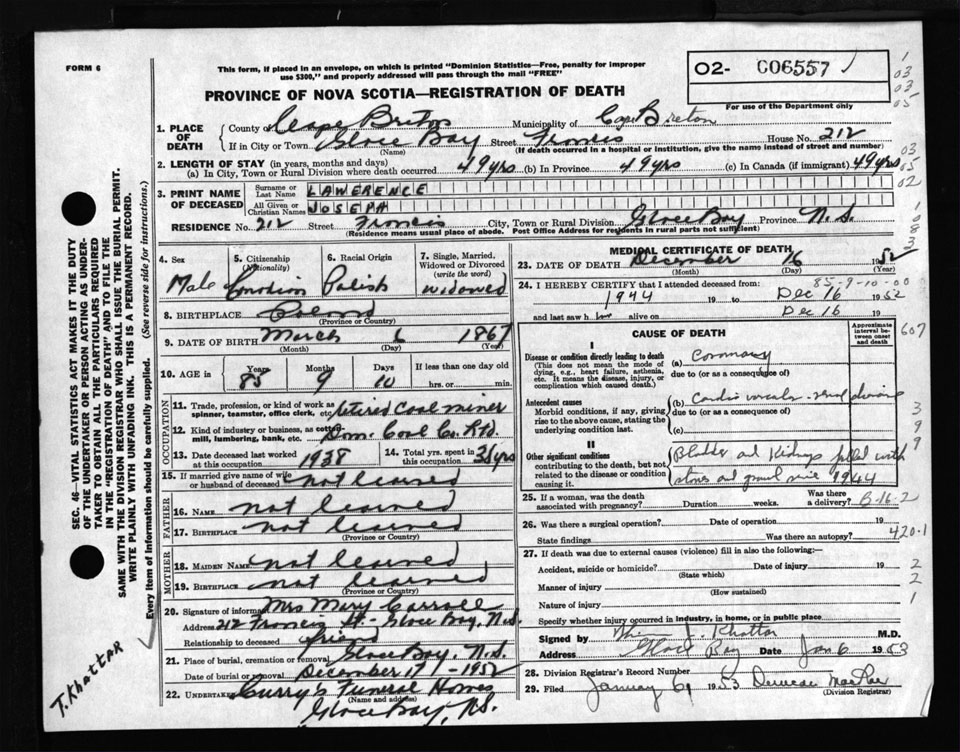 FORM 6
This form, if placed in an envelope, on which is printed "Dominion Statistics—Free, penalty for improper
use $300," and properly addressed will pass through the mail "FREE"
O2- 006557
For use of the Department only
PROVINCE OF NOVA SCOTIA—REGISTRATION OF DEATH
1. PLACE OF DEATH County of Cape Breton Municipality of Cape Breton
If in City or Town Glace Bay Street Francis House No. 212
(Name) (If death occurred in a hospital or institution, give the name instead of street and number)
2. LENGTH OF STAY (in years, months and days)
(a) In City, Town or Rural Division where death occurred 49 yrs (b) In Province 49 yrs (c) In Canada (if immigrant) 49 yrs
3. PRINT NAME OF DECEASED Surname or Last Name LAWERENCE
All Given or Christian Names JOSEPH
RESIDENCE No. 212 Street Francis City, Town or Rural Division Glace Bay Province N.S.
(Residence means usual place of abode. Post Office Address for residents in rural parts not sufficient)
4. Sex Male
5. Citizenship (Nationality) Canadian
6. Racial Origin Polish
7. Single, Married, Widowed or Divorced (write the word) Widowed
8. BIRTHPLACE Poland
(Province or Country)
9. DATE OF BIRTH March 6 1867
(Month) (Day) (Year)
10. AGE Years 85 Months 9 Days 10 If less than one day
hrs. or min.
OCCUPATION
11. Trade, profession, or kind of work as spinner, teamster, office clerk, etc. retired Coal miner
12. Kind of industry or business, as cotton mill, lumbering, bank, etc. Dom. Coal Co. Ltd.
13. Date deceased last worked at this occupation 1938
14. Total yrs. spent in this occupation 35 yrs
15. If married give name of wife or husband of deceased not learned
FATHER
16. NAME not learned
17. BIRTHPLACE not learned
(Province or Country)
MOTHER
18. MAIDEN NAME not learned
19. BIRTHPLACE not learned
(Province or Country)
20. Signature of informant Mrs Mary Carroll
Address 212 Francis St. - Glace Bay, N.S.
Relationship to deceased friend
21. Place of burial, cremation or removal Glace Bay, N.S.
Date of burial or removal December 19 - 1952
22. UNDERTAKER Curry's Funeral Homes
(Name and address)
Glace Bay, N.S.
MEDICAL CERTIFICATE OF DEATH
23. DATE OF DEATH December 16 1952
(Month) (Day) (Year)
85-9-10-00
24. I HEREBY CERTIFY that I attended deceased from:
1944 19 to Dec 16 1952
and last saw him alive on Dec 16 19
CAUSE OF DEATH
Approximate interval between onset and death
607
I
Disease or condition directly leading to death (a) Coronary
(This does not mean the mode of dying, e.g., heart failure, asthenia, etc. It means the disease, injury, or complication which caused death.)
due to (or as a consequence of)
Antecedent causes (b) Cardio vascular - renal disease
Morbid conditions, if any, giving rise to the above cause, stating the underlying condition last.
due to (or as a consequence of)
(c)
II
Other significant conditions contributing to the death, but not related to the disease or condition causing it.
Bladder and Kidneys filled with
stones and gravel since 1944
25. If a woman, was the death associated with pregnancy? Duration weeks. Was there a delivery? 6-16-2
26. Was there a surgical operation? Date of operation 19
State findings Was there an autopsy? 420.1
27. If death was due to external causes (violence) fill in also the following:—
Accident, suicide or homicide? Date of injury 19
(State which)
Manner of injury
(How sustained)
Nature of injury
Specify whether injury occurred in industry, in home, or in public place
Signed by J. Khattar M.D.
Address Glace Bay Jan 6 1953
28. Division Registrar's Record Number
29. Filed January 6, 1953
(Division Registrar)
SEC. 46—VITAL STATISTICS ACT MAKES IT THE DUTY
OF THE UNDERTAKER OR PERSON ACTING AS UNDER-
TAKER TO OBTAIN ALL THE PARTICULARS REQUIRED
IN THE "REGISTRATION OF DEATH" AND TO FILE THE
SAME WITH THE DIVISION REGISTRAR WHO SHALL ISSUE THE BURIAL PERMIT.
WRITE PLAINLY WITH UNFADING INK. THIS IS A PERMANENT RECORD.
Every item of Information should be carefully supplied. (See reverse side for instructions.)
T. KHATTAR
1
03
03
05
03
05
02
1
0
8
3
3
9
9
2
2
1